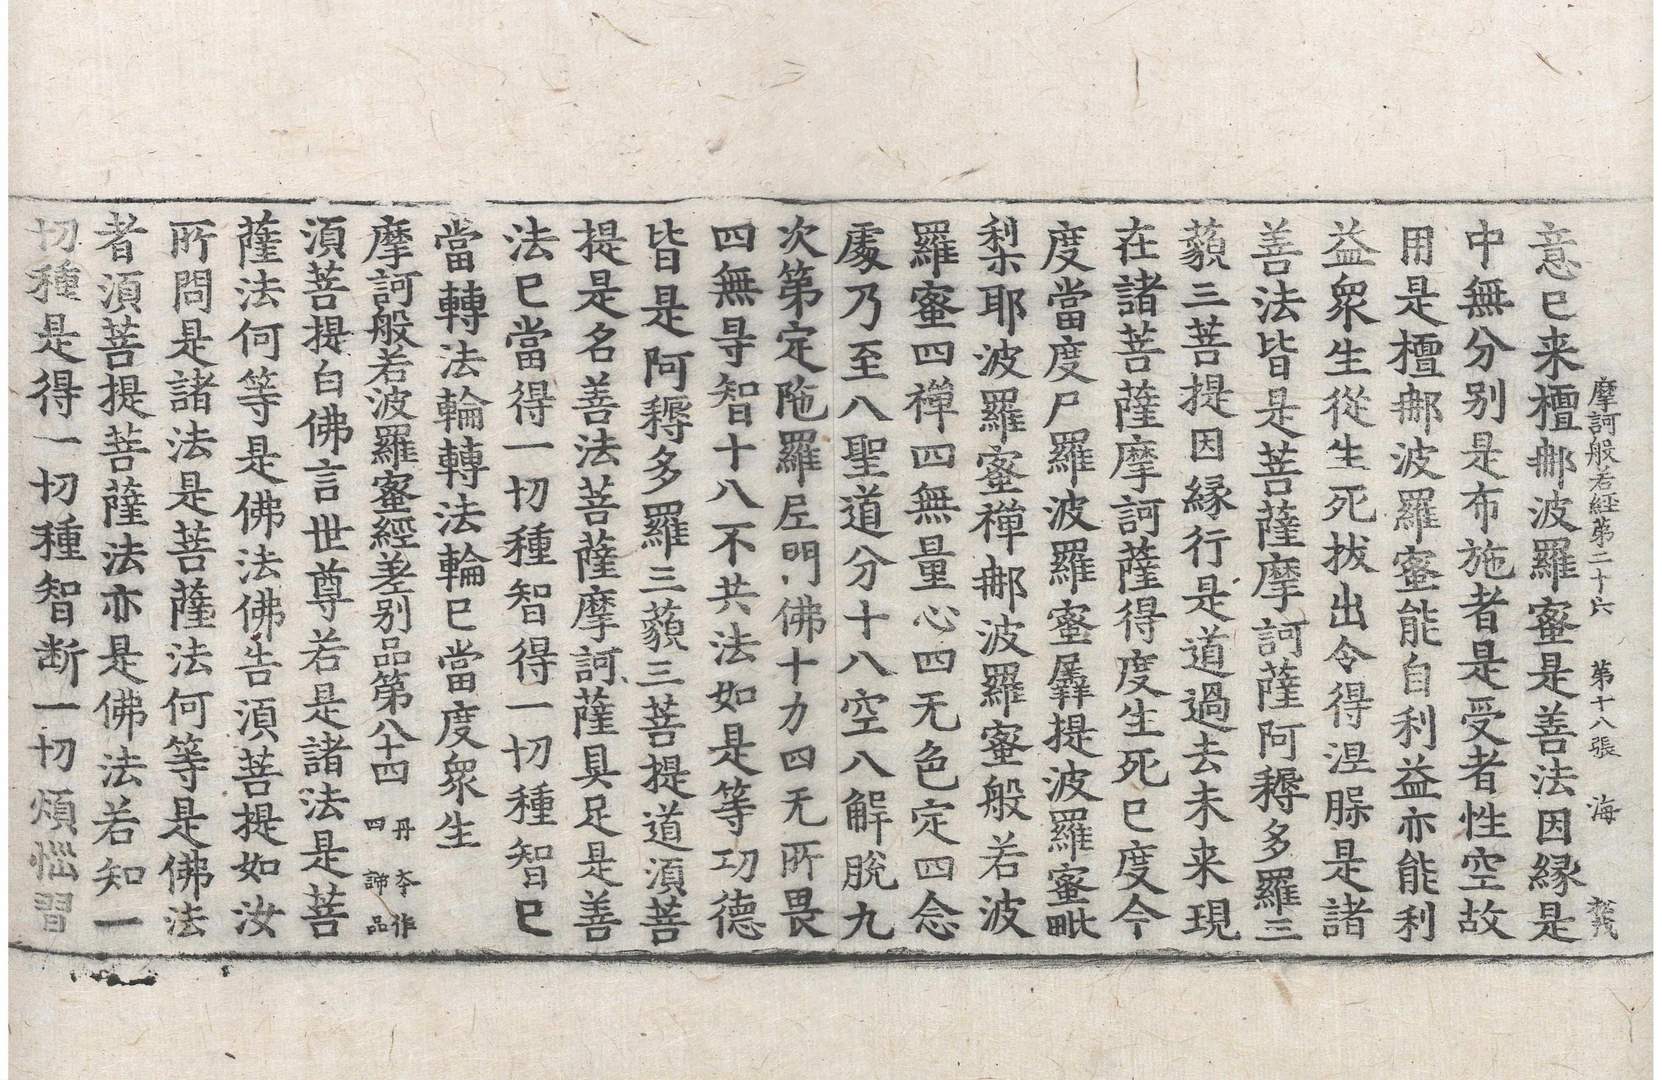 摩訶般若經第二十六　第十八張　海
意已来檀郍波羅蜜是善法因縁是
中無分别是布施者是受者性空故
用是檀郍波羅蜜能自利益亦能利
益衆生從生死拔出令得涅膝是諸
善法皆是菩薩摩訶薩阿耨多羅三
藐三菩提因縁行是道過去未来現
在諸菩薩摩訶薩得度生死已度今
度當度尸羅波羅蜜羼提波羅蜜毗
梨耶波羅蜜禪郍波羅蜜般若波
羅蜜四禪四無量心四无色定四念
處乃至八聖道分十八空八解脫九
次第定陁羅𡰱門佛十力四无所畏
四無㝵智十八不共法如是等功德
皆是阿耨多羅三藐三菩提道湏菩
提是名善法菩薩摩訶薩具足是善
法已當得一切種智得一切種智已
當轉法輪轉法輪已當度衆生
摩訶般若波羅蜜經差别品第八十四 丹夲作四諦品
湏菩提白佛言世尊若是諸法是菩
薩法何等是佛法佛告湏菩提如汝
所問是諸法是菩薩法何等是佛法
者湏菩提菩薩法亦是佛法若知一
切種是得一切種智断一切煩惱習